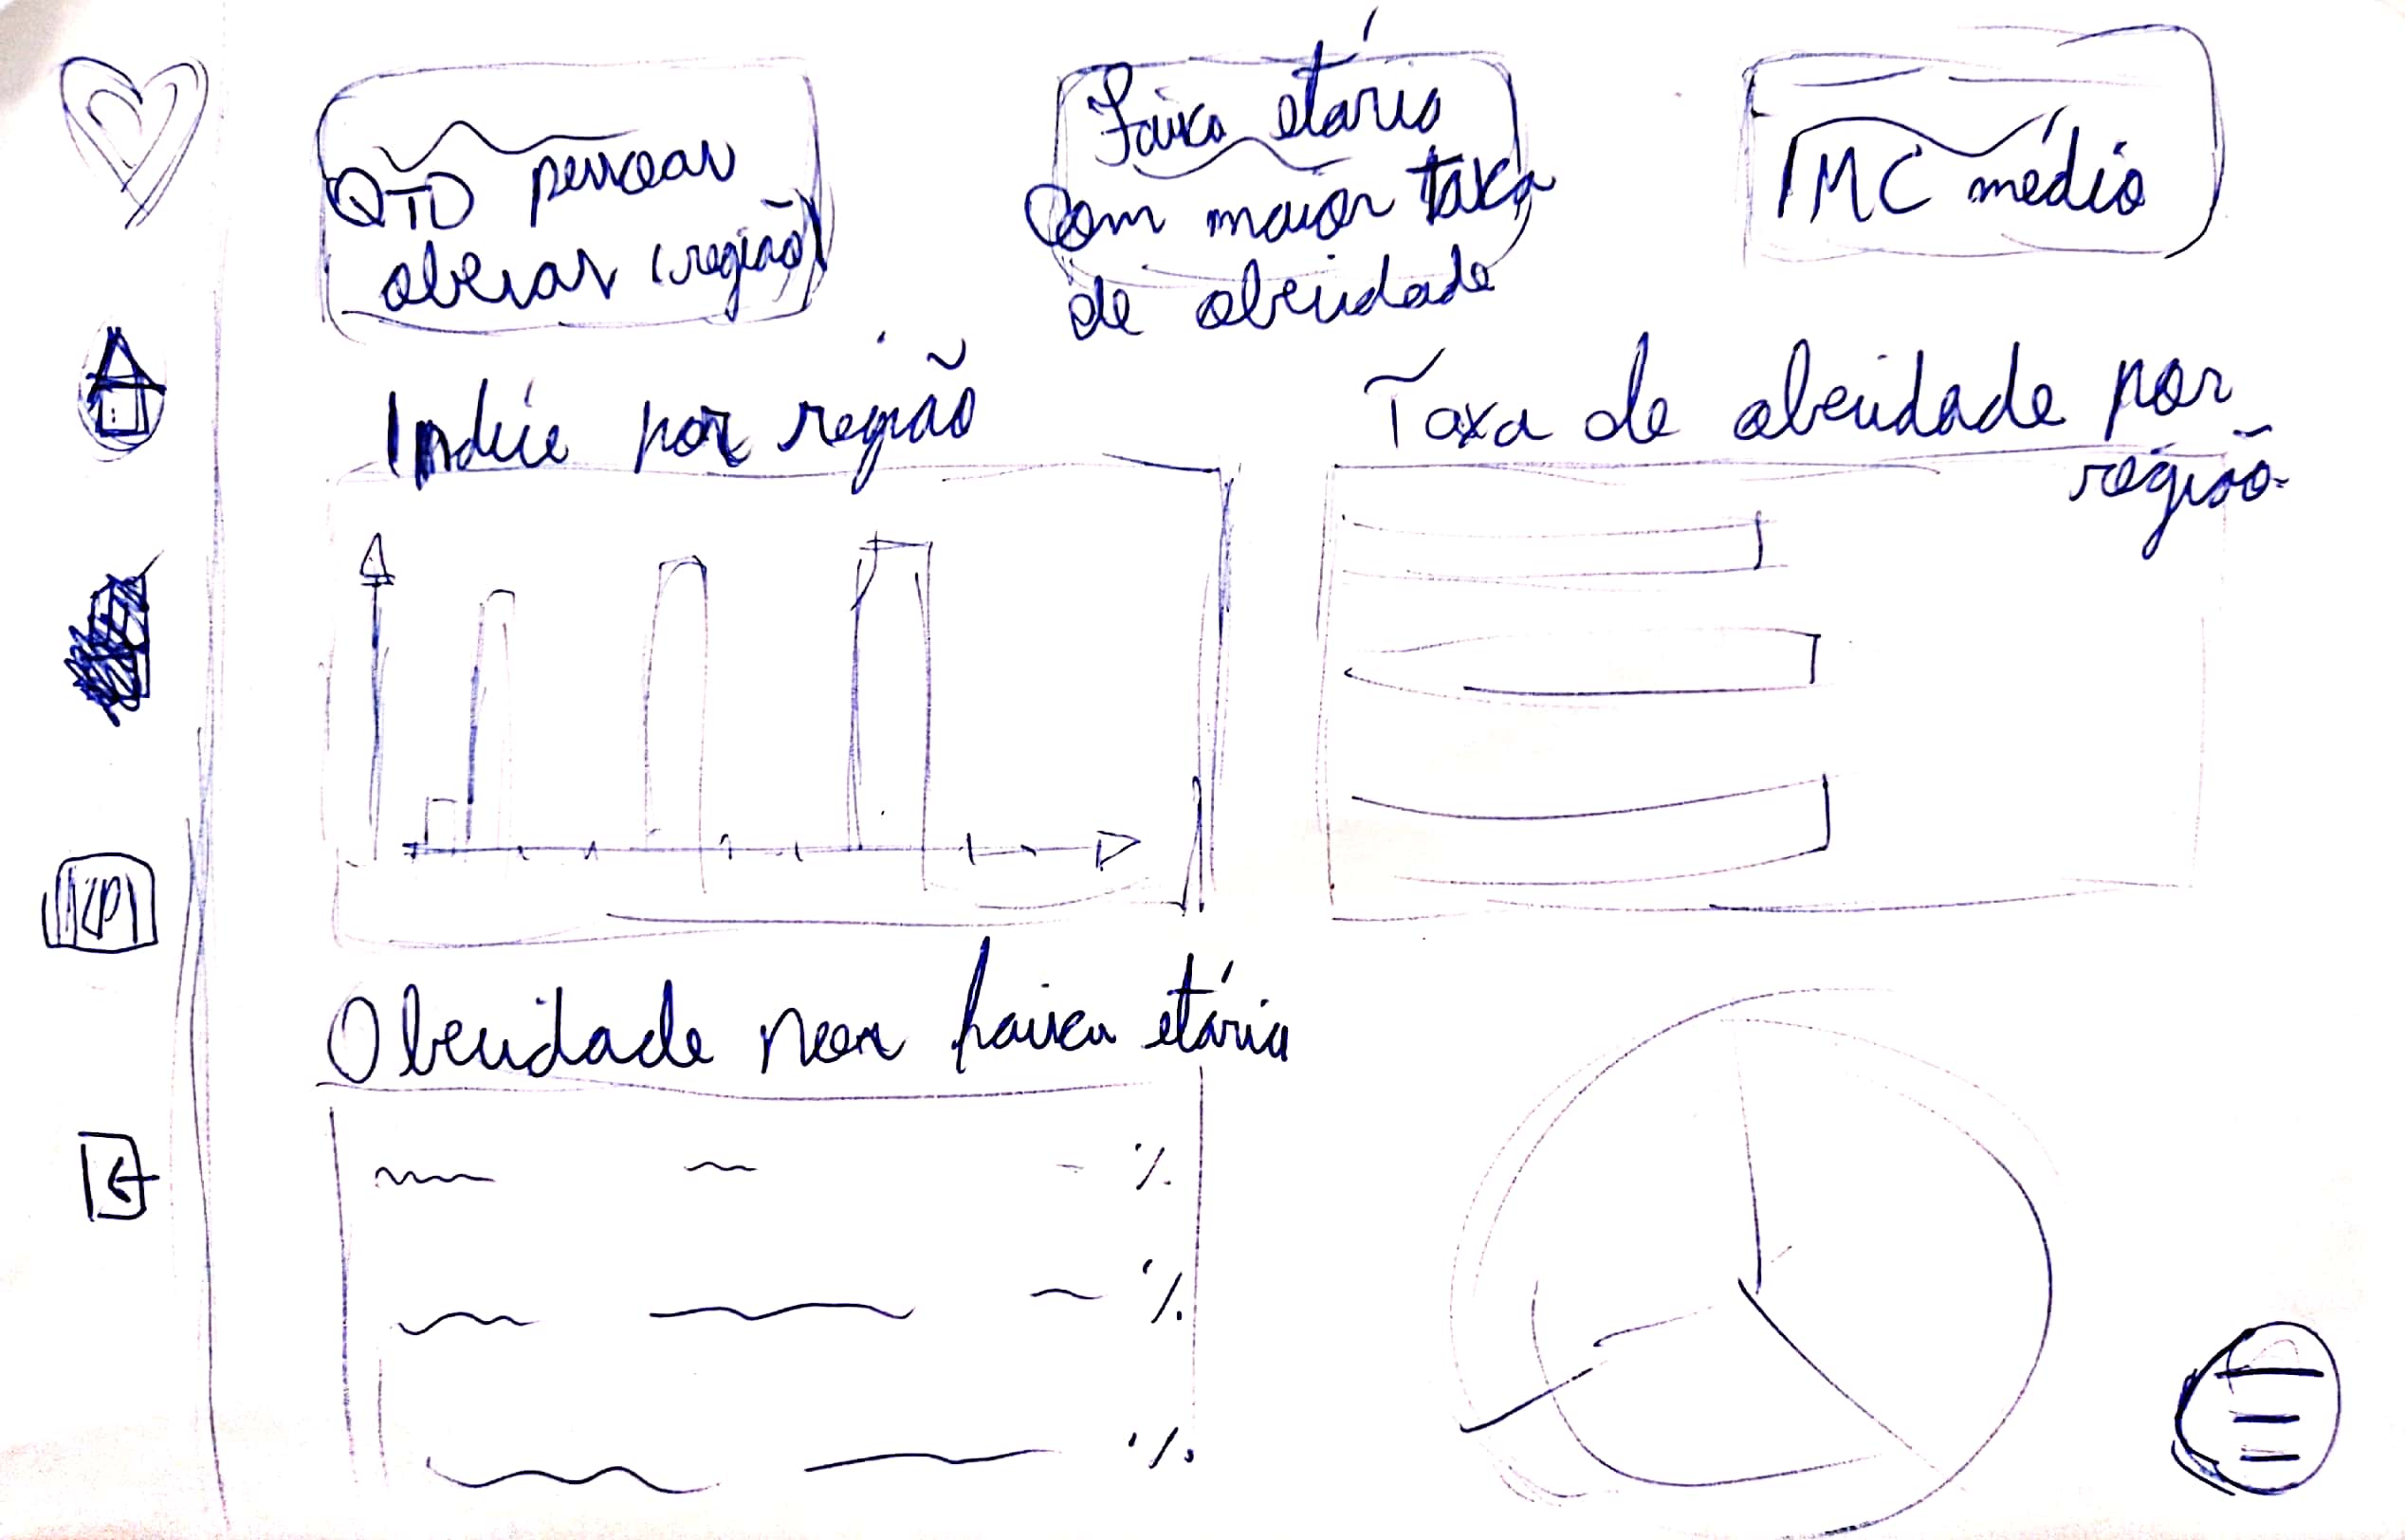 QTD pessoas
obesas (região)
Faixa etária
Com maior taxa
de obesidade
IMC médio
Indíce por região
Taxa de obesidade por
região
KPI
Obesidade por faixa etária
%
%
%